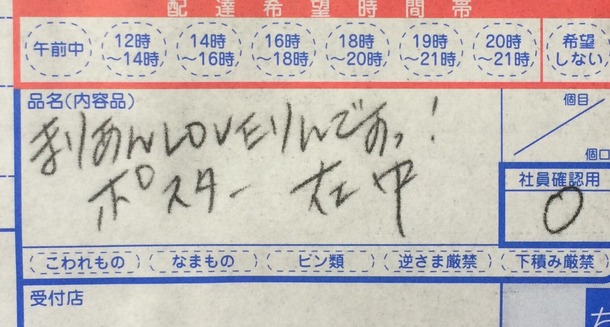 配達希望時間帯
午前中 12時～14時 14時～16時 16時～18時 18時～20時 19時～21時 20時～21時 希望しない
品名(内容品)
まりあんLOVEりんですっ!
ポスター 在中
個目
個口
社員確認用
こわれもの なまもの ビン類 逆さま厳禁 下積み厳禁
受付店